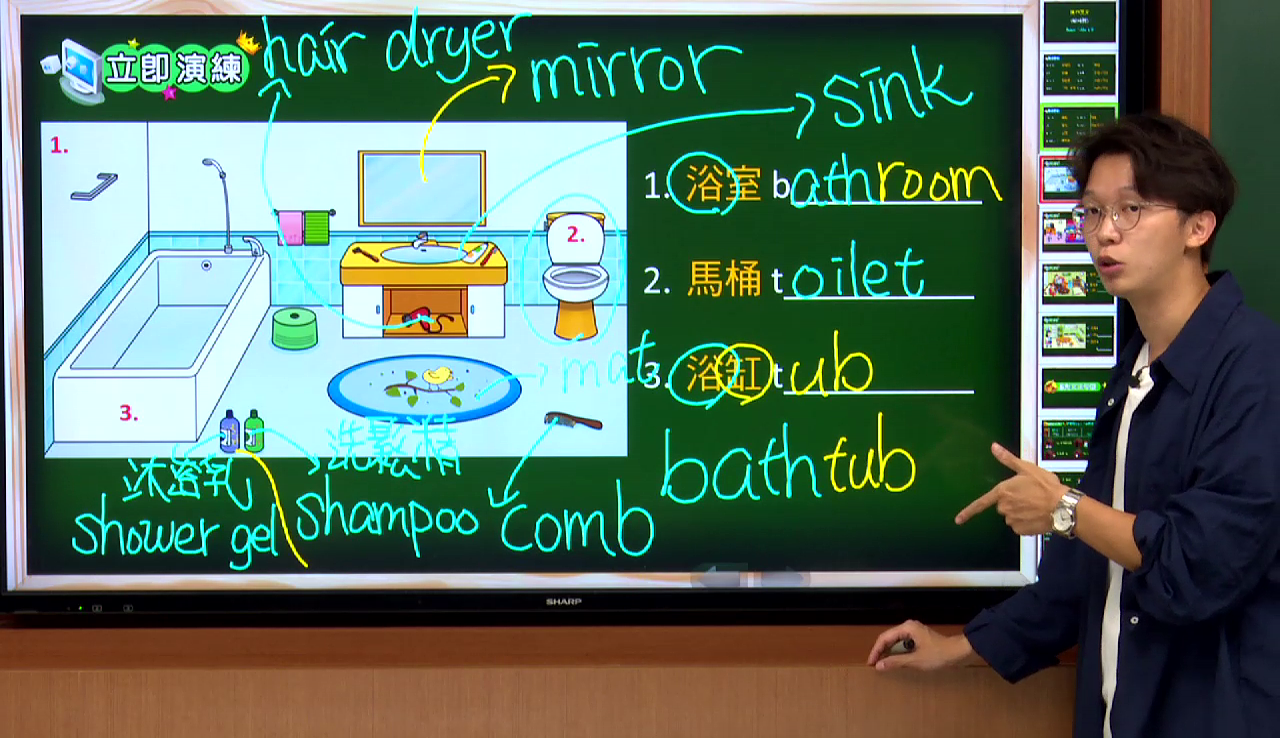 立即演練
hair dryer
mirror
sink
1.
2.
3.
1. 浴室 bathroom
2. 馬桶 toilet
3. 浴缸 tub
mat
bathtub
沐浴乳
洗髮精
shower gel
shampoo
comb
SHARP